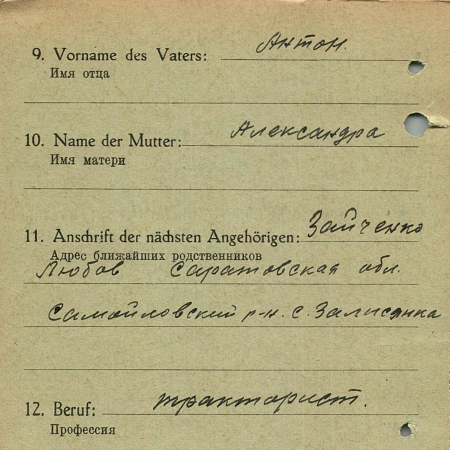 9. Vorname des Vaters: Антон.
Имя отца
10. Name der Mutter: Александра
Имя матери
11. Anschrift der nächsten Angehörigen: Зайченко
Адрес ближайших родственников
Любов Саратовская обл.
Самойловский р-н. с. Залисянка
12. Beruf: тракторист.
Профессия